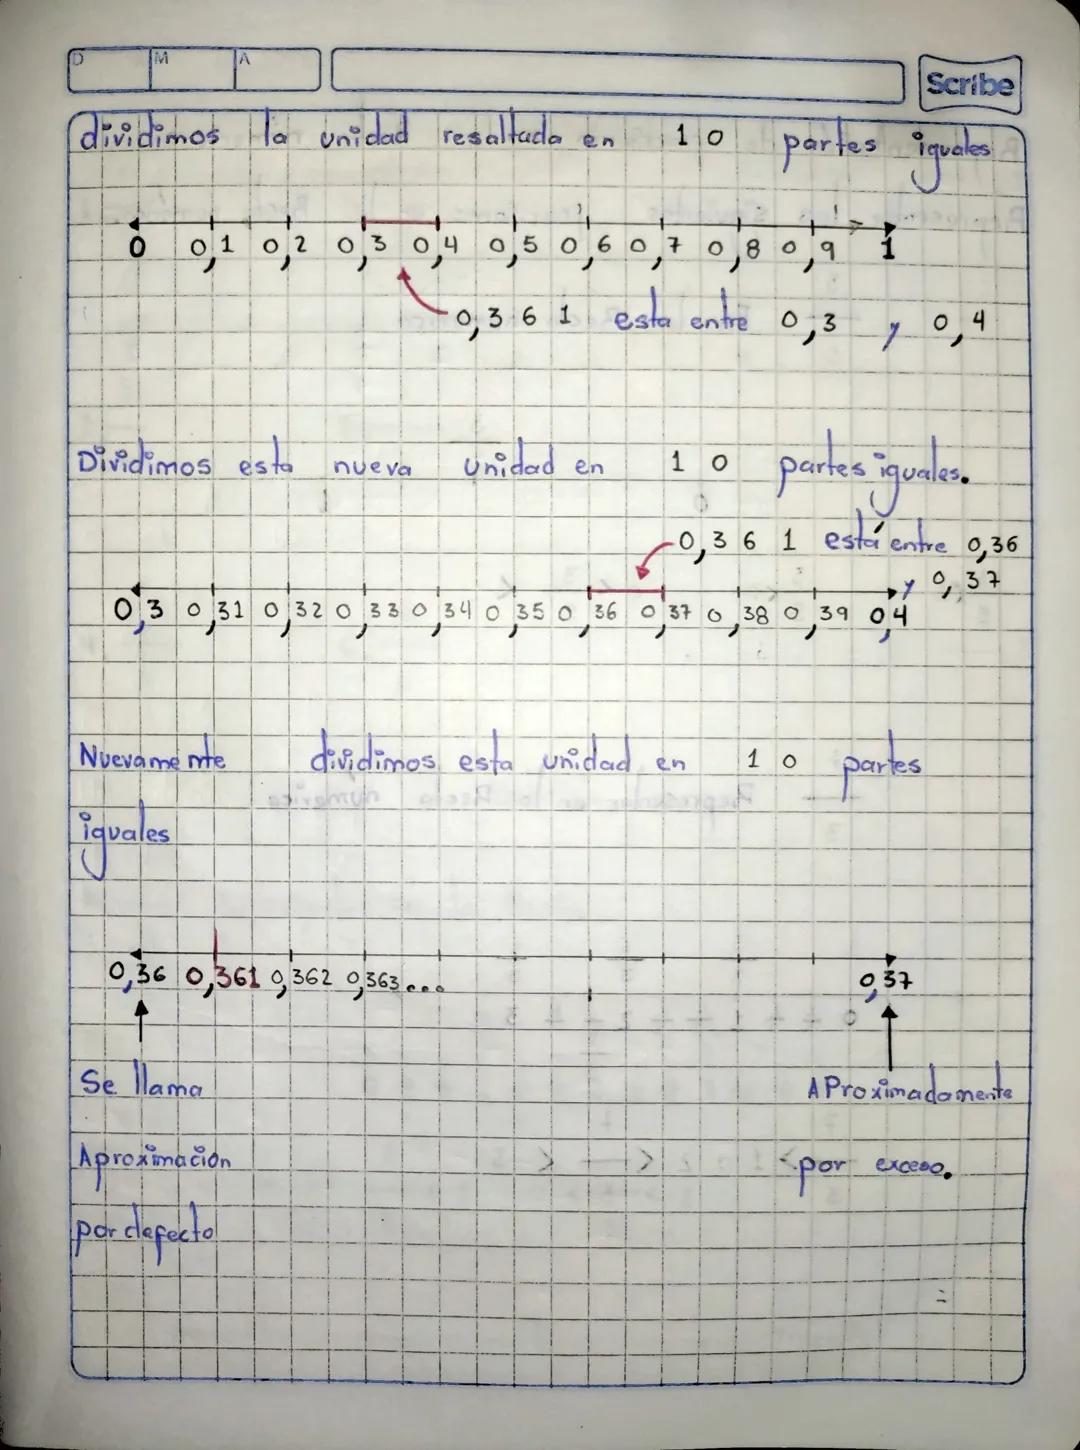 D M A
Scribe
dividimos la unidad resaltada en 10 partes iguales
0 0,1 0,2 0,3 0,4 0,5 0,6 0,7 0,8 0,9 1
0,361 esta entre 0,3 y 0,4
Dividimos esta nueva unidad en 10 partes iguales.
0,361 está entre 0,36
y 0,37
0,3 0,31 0,32 0,33 0,34 0,35 0,36 0,37 0,38 0,39 0,4
Nuevamente dividimos esta unidad en 10 partes
iguales
0,36 0,361 0,362 0,363... 0,37
Se llama
Aproximación
por defecto
AProximadamente
por exceso.